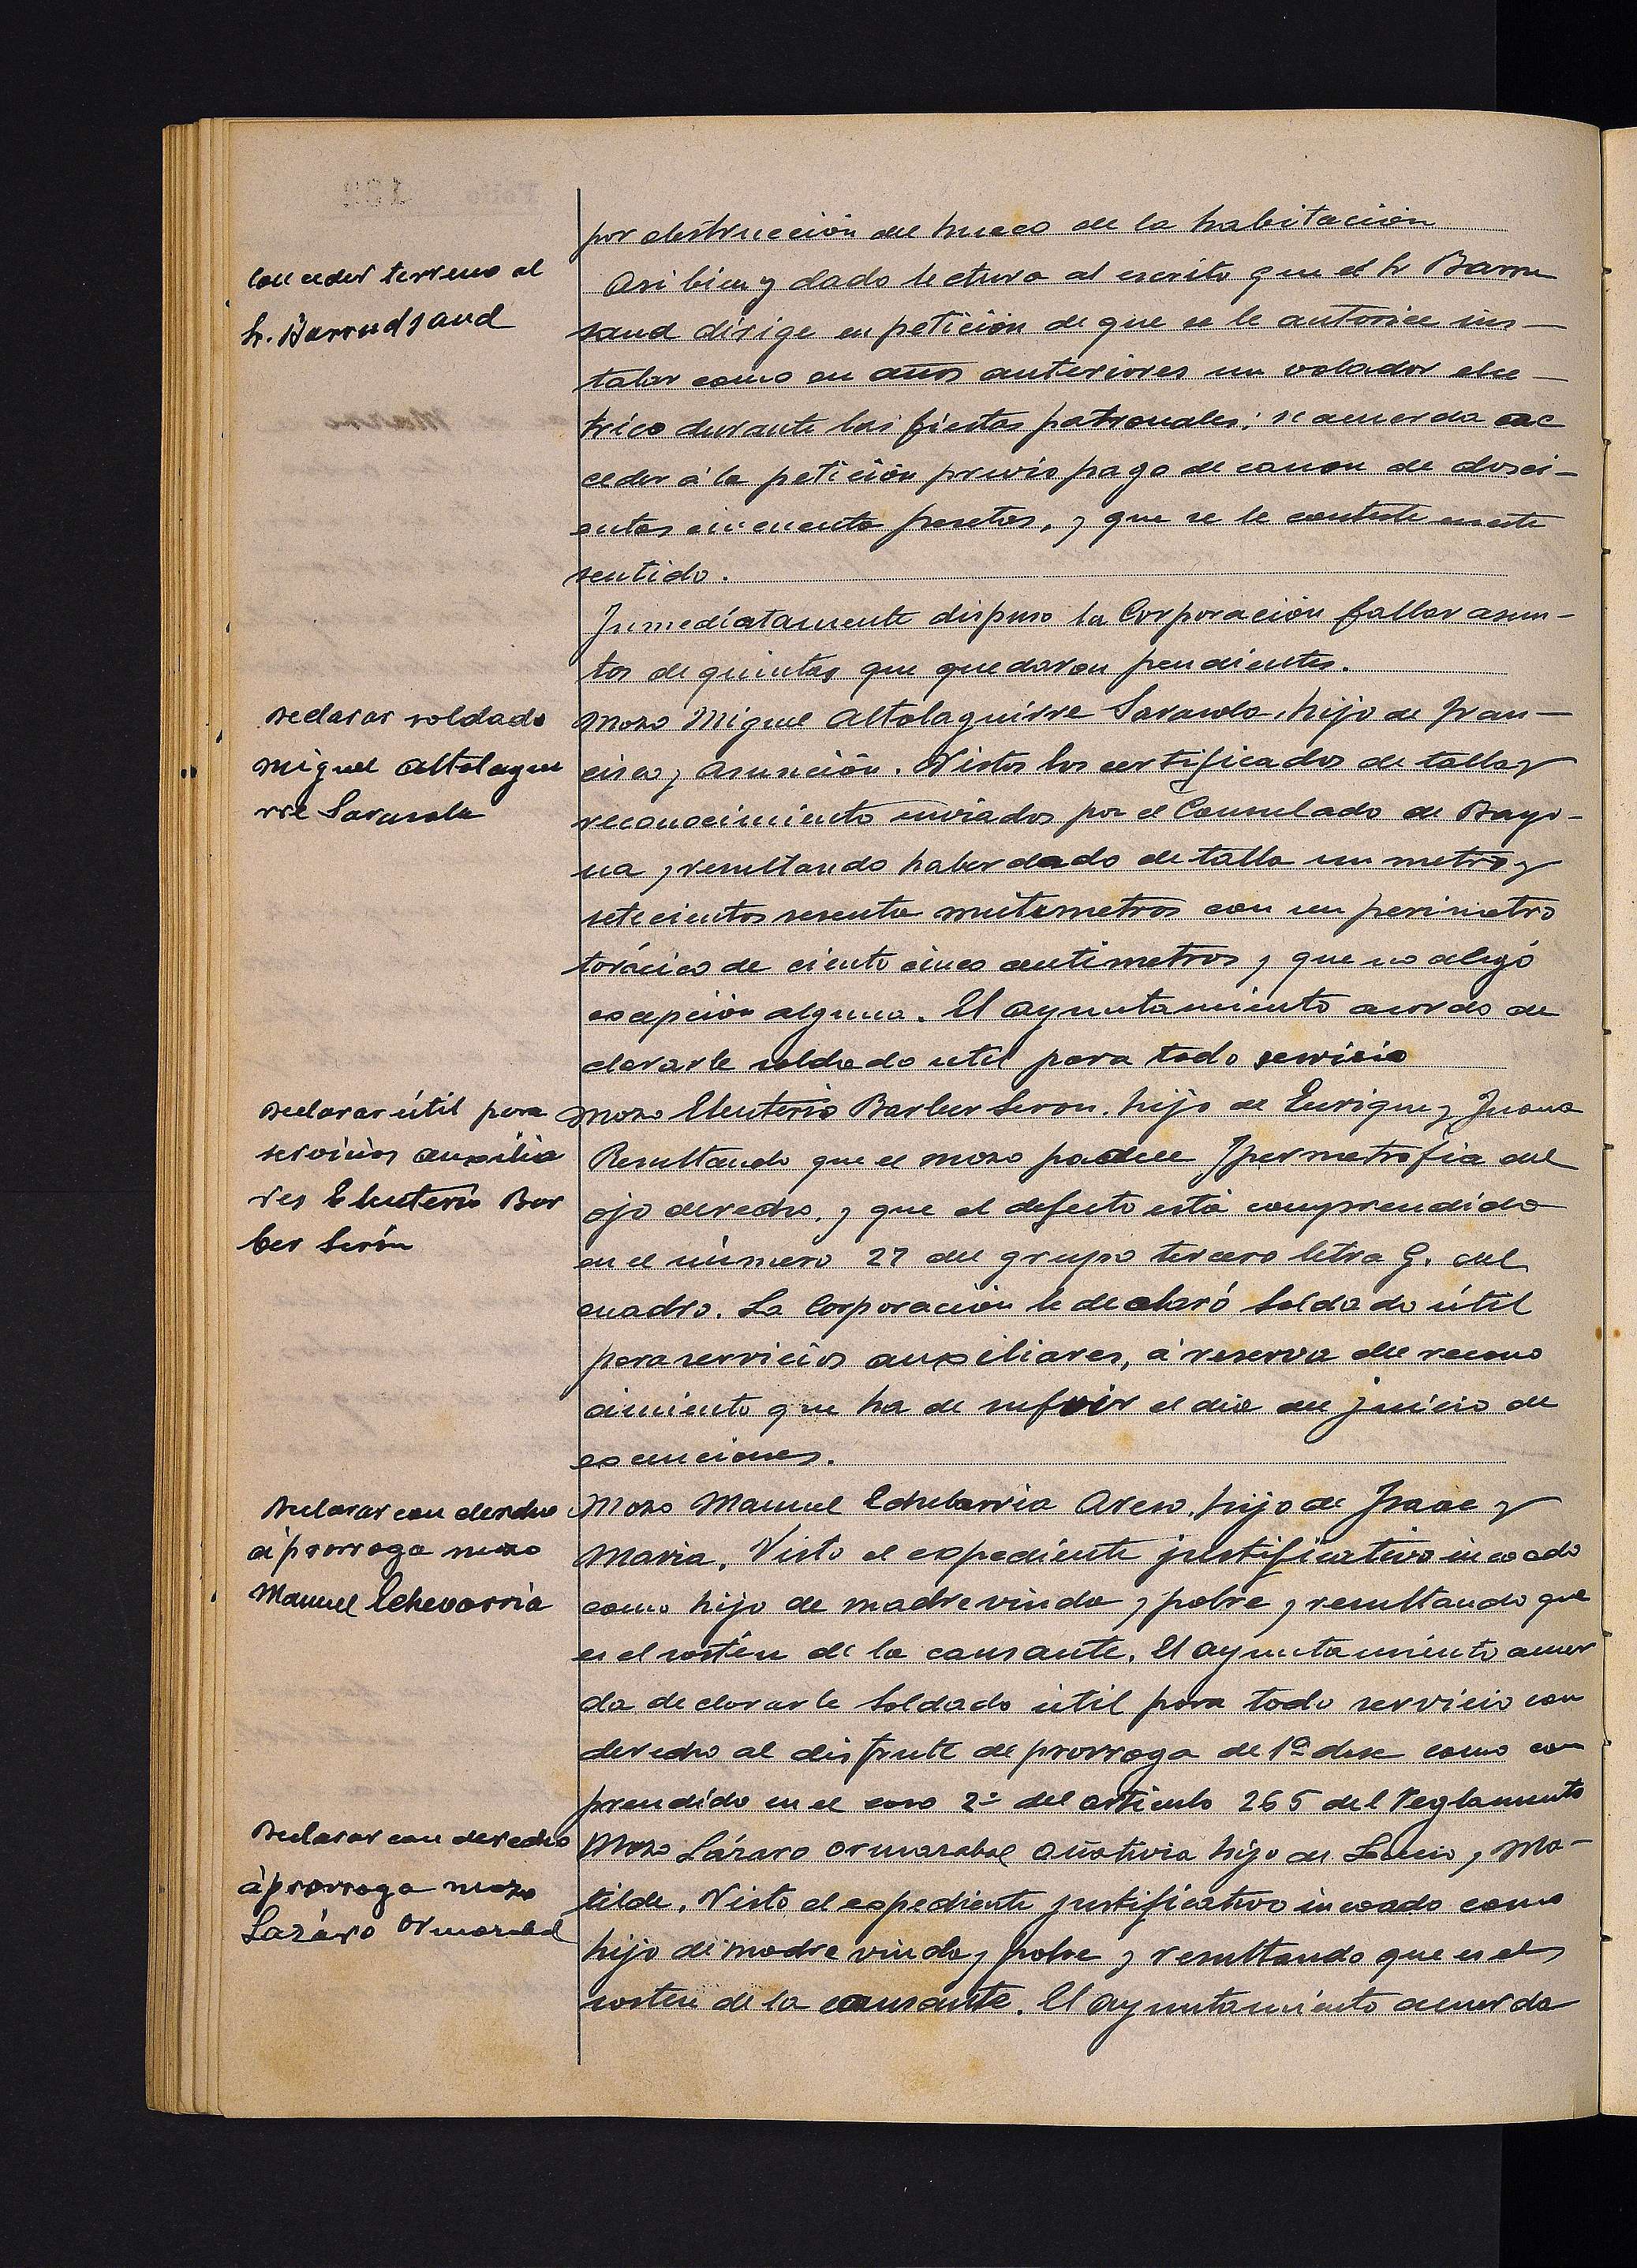 por obstrucción del hueco de la habitación
Conceder terreno al
Sr. Barrudsaud
Asi bien y dado lectura al escrito que el Sr Barru
saud dirige en petición de que se le autorice ins-
talar como en años anteriores un volador elec-
trico durante las fiestas patronales; se acuerda ac
ceder á la petición previo pago de canon de dosci-
entas cincuenta pesetas, y que se le conteste en este
sentido.
Inmediatamente dispuso la Corporación fallar asun-
tos de quintas que quedaron pendientes.
Declarar soldado
Miguel Altolagui
rre Sarasola
Mozo Miguel Altolaguirre Sarasola, hijo de Fran-
cisco y Asunción. Vistos los certificados de talla y
reconocimiento enviados por el Consulado de Bayo-
na y resultando haber dado de talla un metro y
setecientos sesenta milimetros con un perimetro
torácico de ciento cinco centimetros y que no alegó
excepción alguna. El Ayuntamiento acordo de
clararle soldado util para todo servicio
Declarar útil para
servicios auxilia
res Eleuterio Bar
ber Serón
Mozo Eleuterio Barber Seron, hijo de Enrique y Juana
Resultando que el mozo padece Ipermetrofia del
ojo derecho, y que el defecto está comprendido
en el número 27 del grupo tercero letra G. del
cuadro. La Corporación le declaró Soldado útil
para servicios auxiliares, á reserva del recono
cimiento que ha de sufrir el dia del juicio de
exenciones.
Declarar con derecho
á prorroga mozo
Manuel Echevarria
Mozo Manuel Echebarria Areso, hijo de Isaac y
Maria, Visto el expediente justificativo incoado
como hijo de madre viuda y pobre y resultando que
es el sostén de la causante. El Ayuntamiento acuer
da declararle Soldado útil para todo servicio con
derecho al disfrute de prorroga de 1ª clase como com
prendido en el caso 2º del articulo 265 del Reglamento
Declarar con derecho
á prorroga mozo
Lazaro Ormazabal
Mozo Lázaro Ormazabal Oñativia hijo de Lucio y Ma-
tilde. Visto el expediente justificativo incoado como
hijo de madre viuda y pobre y resultando que es el
sosten de la causante. El Ayuntamiento acuerda